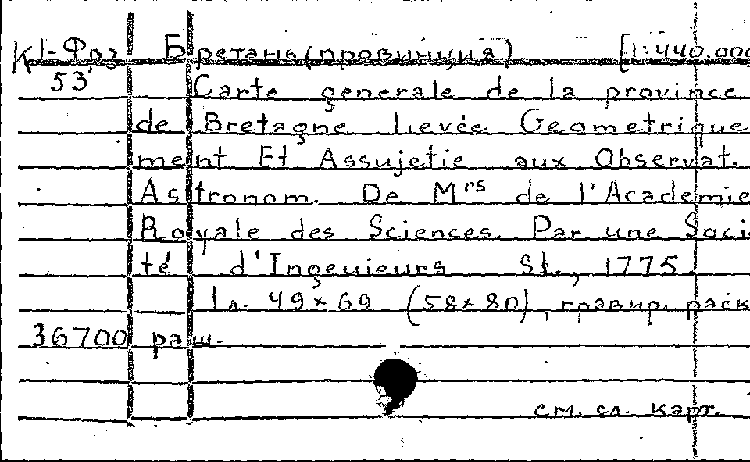 К1-Фаз Бретань (провинция) [1:440.000
53 Carte generale de la province
de Bretagne Lievée Geometrique
ment Et Assujetie aux Observat.
Astronom. De Mrs de l'Academie
Royale des Sciences. Par une Soci
té d'Ingenieurs St., 1775.
1 л. 49×69 (58×80), гравир. раск
36700 раш.
см. сл. карт.